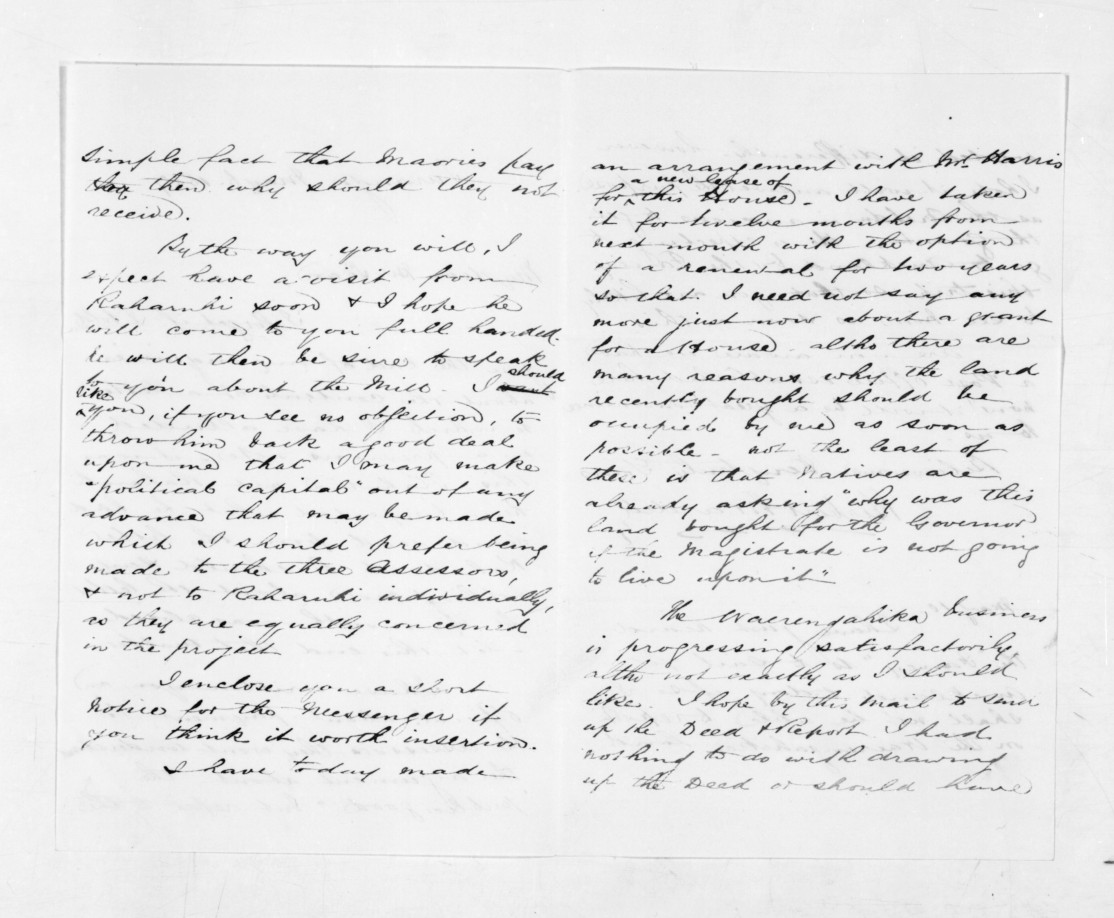 simple fact that Maories pay
tax then why should they not
receive.
By the way you will, I
expect have a visit from
Raharuhi soon & I hope he
will come to you full handed.
he will then be sure to speak
to you about the Mill. I want should
like you, if you see no objection, to
throw him back a good deal
upon me that I may make
"political capital" out of any
advance that may be made
which I should prefer being
made to the three assessors,
& not to Raharuhi individually,
as they are equally concerned
in the project
I enclose you a short
notice for the Messenger if
you think it worth insertion.
I have to day made
an arrangement with Mr Harris
for a new lease of this House. I have taken
it for twelve months from
next month with the option
of a renewal for two years
so that I need not say any
more just now about a grant
for a House. altho there are
many reasons why the land
recently bought should be
occupied by me as soon as
possible - not the least of
these is that Natives are
already asking "why was this
land bought for the Governor
if the Magistrate is not going
to live upon it"
The Waerengahika business
is progressing satisfactorily,
altho not exactly as I should
like. I hope by this Mail to send
up the Deed & Report. I had
nothing to do with drawing
up the Deed or should have